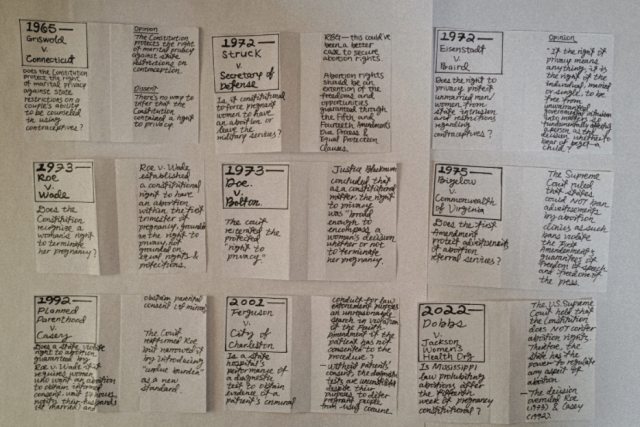 1965 —
Griswold
v.
Connecticut
Does the Constitution
protect the right
of marital privacy
against state
restrictions on a
couple's ability
to be counseled
in using
contraceptives?
Opinion
The Constitution
protects the right
of marital privacy
against state
restrictions on
contraception.
Dissent
There's no way to
infer that the
Constitution
contained a right
to privacy.
1972 —
Struck
v.
Secretary of
Defense
Is it constitutional
to force pregnant
women to have
an abortion or
leave the
military services?
RBG — this could've
been a better
case to secure
abortion rights
Abortion rights
should be an
extension of the
freedoms and
opportunities
guaranteed through
the Fifth and
Fourteenth Amendments
Due Process &
Equal Protection
Clauses.
1972 —
Eisenstadt
v.
Baird
Does the right to
privacy protect
unmarried men/
women from state
intrusion and
restrictions
regarding
contraceptives?
Opinion
"If the right of
privacy means
anything, it is
the right of the
individual, married
or single, to be
free from
unwarranted
governmental intrusion
into matters so
fundamentally affecting
a person as the
decision whether to
bear or beget a
child?
1973 —
Roe
v.
Wade
Does the
Constitution
recognize a
woman's right
to terminate
her pregnancy?
Roe v. Wade
established a
constitutional
right to have
an abortion
within the first
trimester of
pregnancy, grounded
in the right to
privacy, not
grounded on
equal rights &
protections.
1973 —
Doe
v.
Bolton
The court
reiterated the
protected
"right to
privacy"
Justice Blackmun
concluded that
as a constitutional
matter the right
to privacy
was "broad
enough to
encompass a
woman's decision
whether or not
to terminate
her pregnancy.
1975 —
Bigelow
v.
Commonwealth
of Virginia
Does the first
Amendment
protect advertisements
of abortion
referral services?
The Supreme
Court ruled
that states
could NOT ban
advertisements
by abortion
clinics as such
bans violate
the First
Amendment's
guarantees of
freedom of speech
and freedom of
the press.
1992 —
Planned
Parenthood
v.
Casey
Does a state violate
right to abortion
guaranteed by
Roe v. Wade if it
requires women
who want an abortion
to obtain informed
consent, wait 24 hours,
notify their husbands
(if married) and
obtain parental
consent (if minor)
The Court
reaffirmed Roe
but narrowed it
by introducing
"undue burden"
as a new
standard.
2001 —
Ferguson
v.
City of
Charleston
Is a state
hospital's
performance of
a diagnostic
test to obtain
evidence of a
patient's criminal
conduct for law
enforcement purposes
an unreasonable
search in violation
of the Fourth
Amendment if the
patient has not
consented to the
procedure?
Without patients'
consent, the diagnostic
tests are unconstitutional
despite
purpose to deter
pregnant people
from using cocaine
2022 —
Dobbs
v.
Jackson
Women's
Health Org
Is Mississippi
law prohibiting
abortions after
the fifteenth
week of pregnancy
constitutional?
The U.S. Supreme
Court held that
the Constitution
does NOT confer
abortion rights.
Therefore, the
state has the
power to regulate
any aspect of
abortion
— The decision
overruled Roe
(1973) & Casey
(1992).